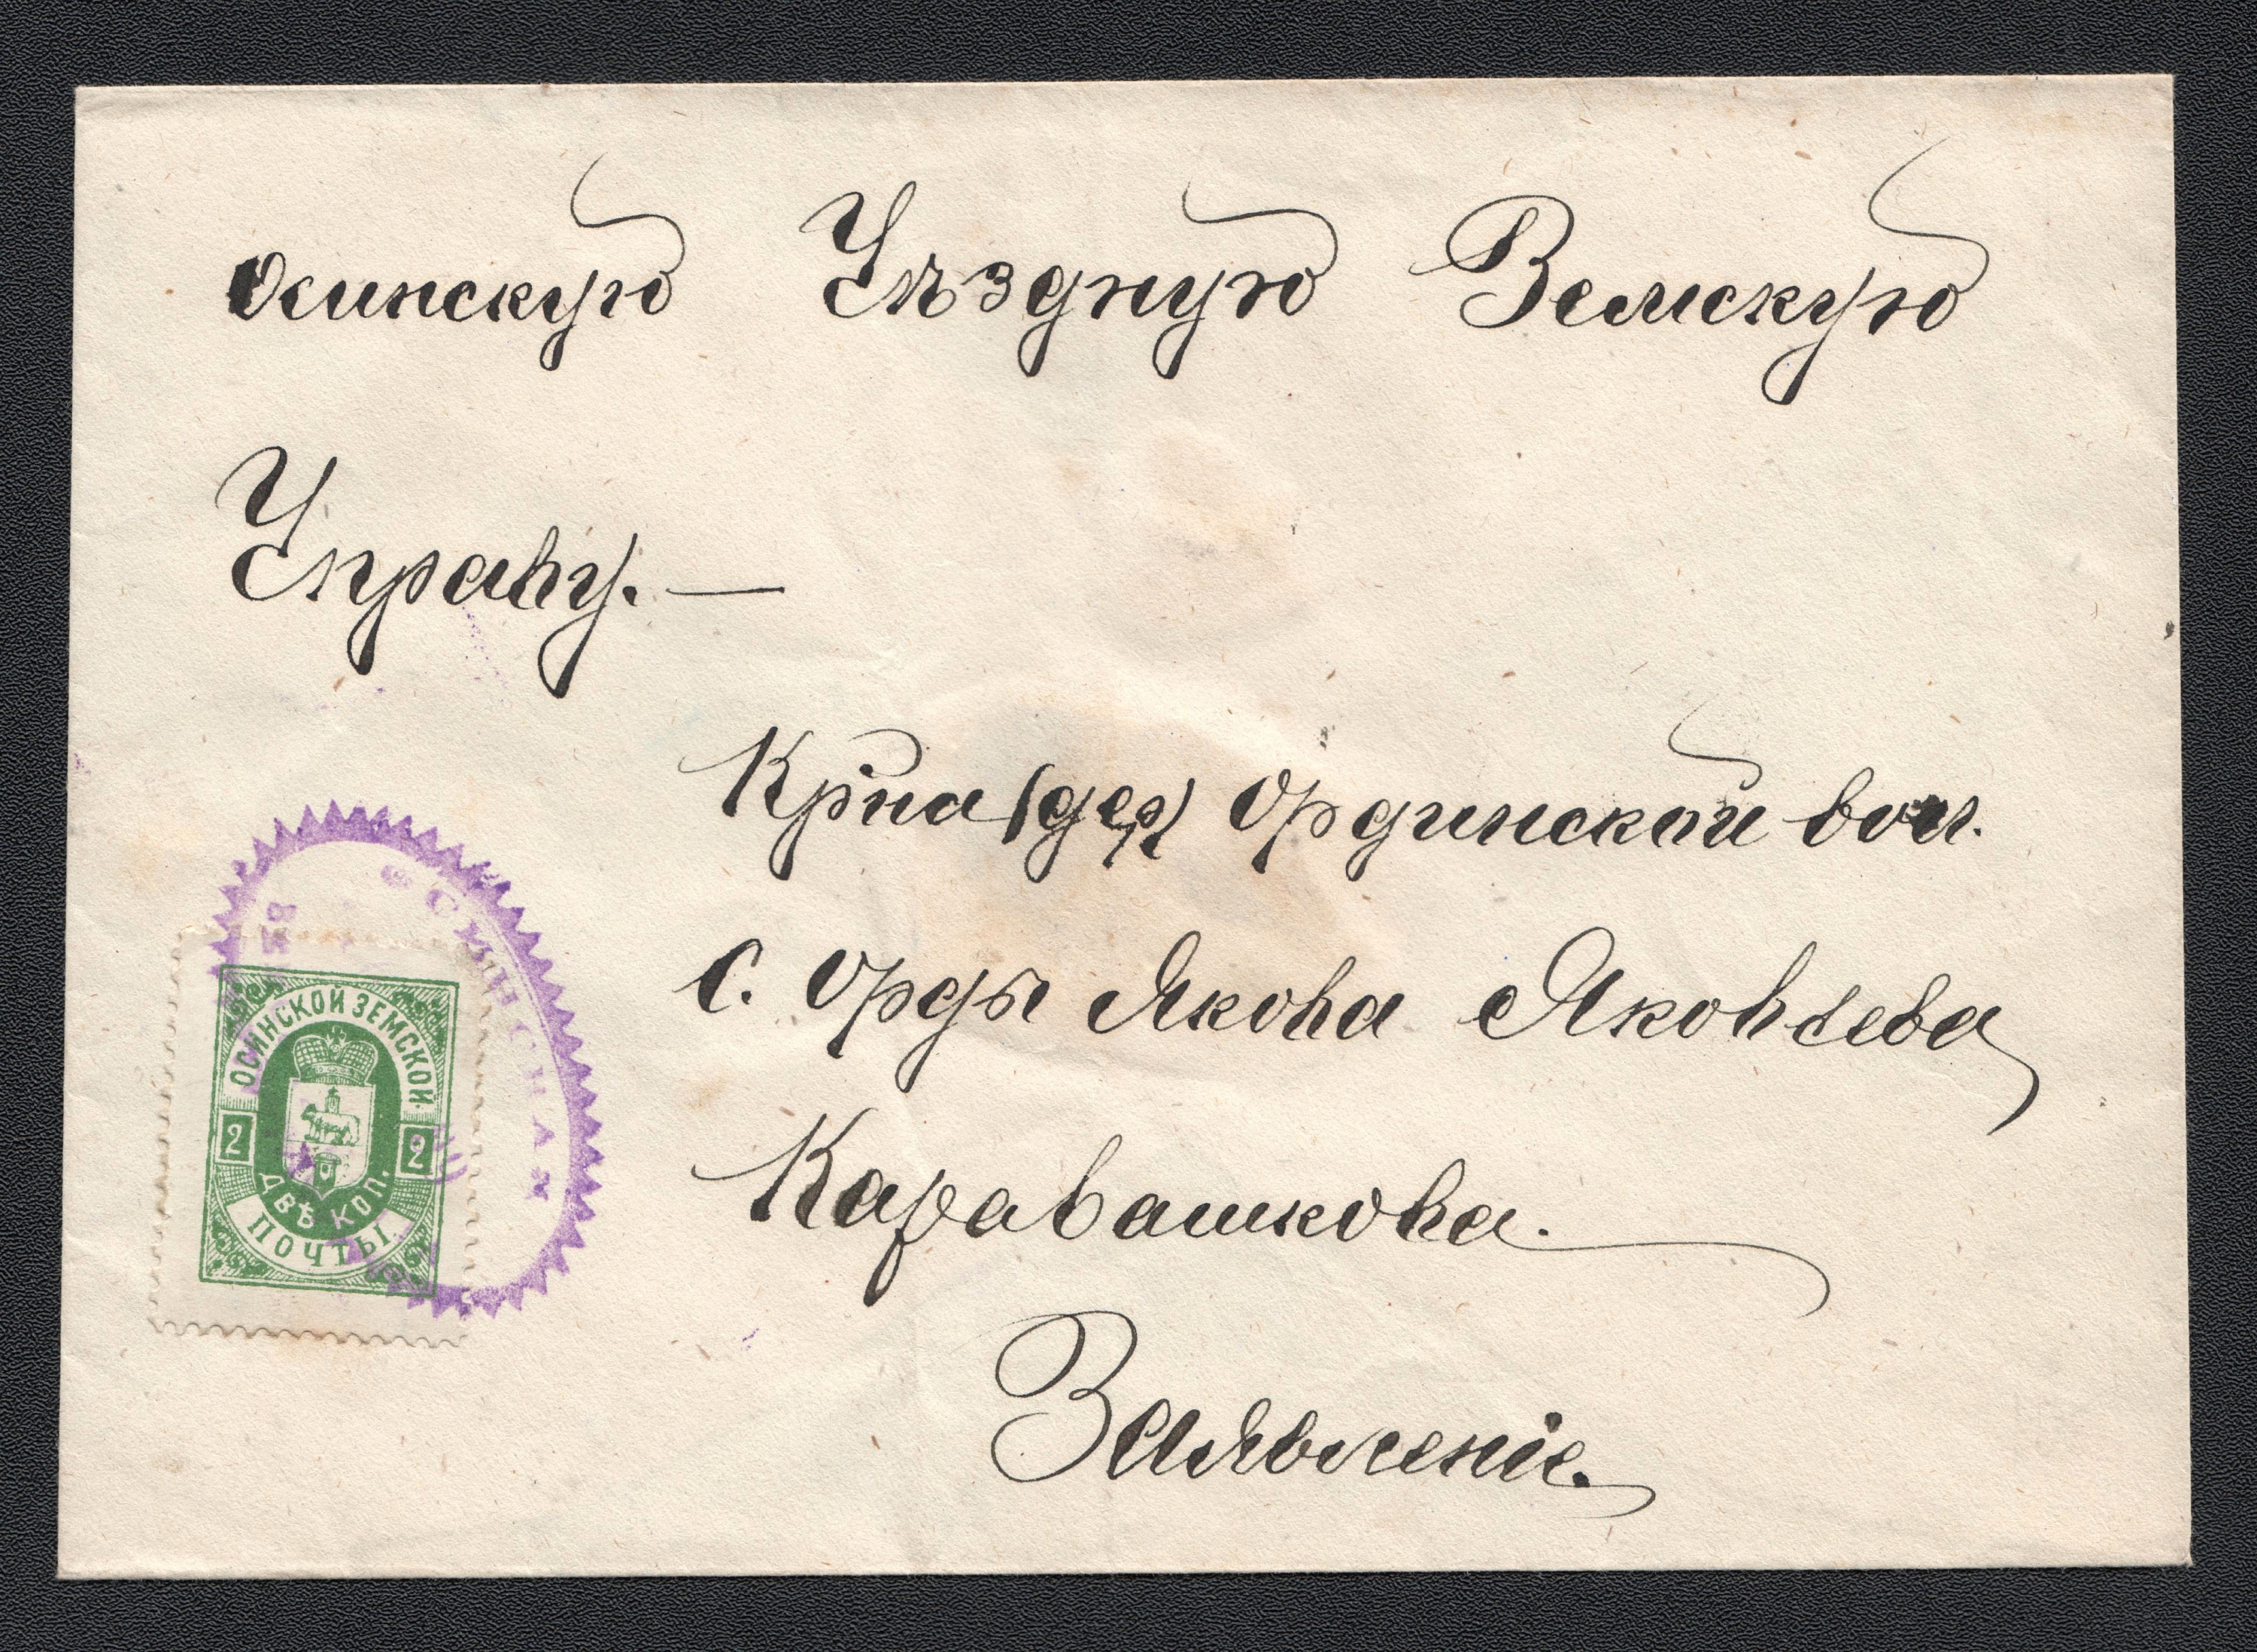 Осинскую Уѣздную Земскую
Управу. —
Кр-на (дер) Ординской вол.
С. Орды Якова Яковлева
Каравашкова.
Заявленіе.
ОСИНСКОЙ ЗЕМСКОЙ
2 2
ДВѢ КОП.
ПОЧТЫ.
ОСИНСКАЯ